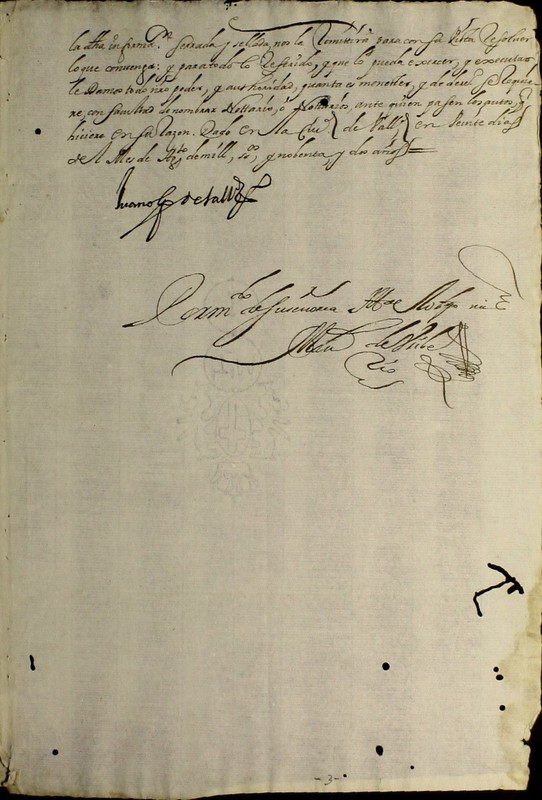 la dha infor.on serrada, y sellada, nos la remitirá para con su vista resoluer
lo que convenga: y para todo lo referido, y que lo pueda exercer, y executar
le Damos todo nro poder, y authoridad, quanto es menester, y de derecho se requie-
re, con facultad de nombrar Nottario, o Nottarios, ante quien pasen los autos, q
hiciere en su razon. Dado en la Ciud de Vallid en Veinte dias
del Mes de Ag.to de mill, ss.os, y nobenta, y dos años
Juan de Vall
Por m.do de su señoria el
de
-3-